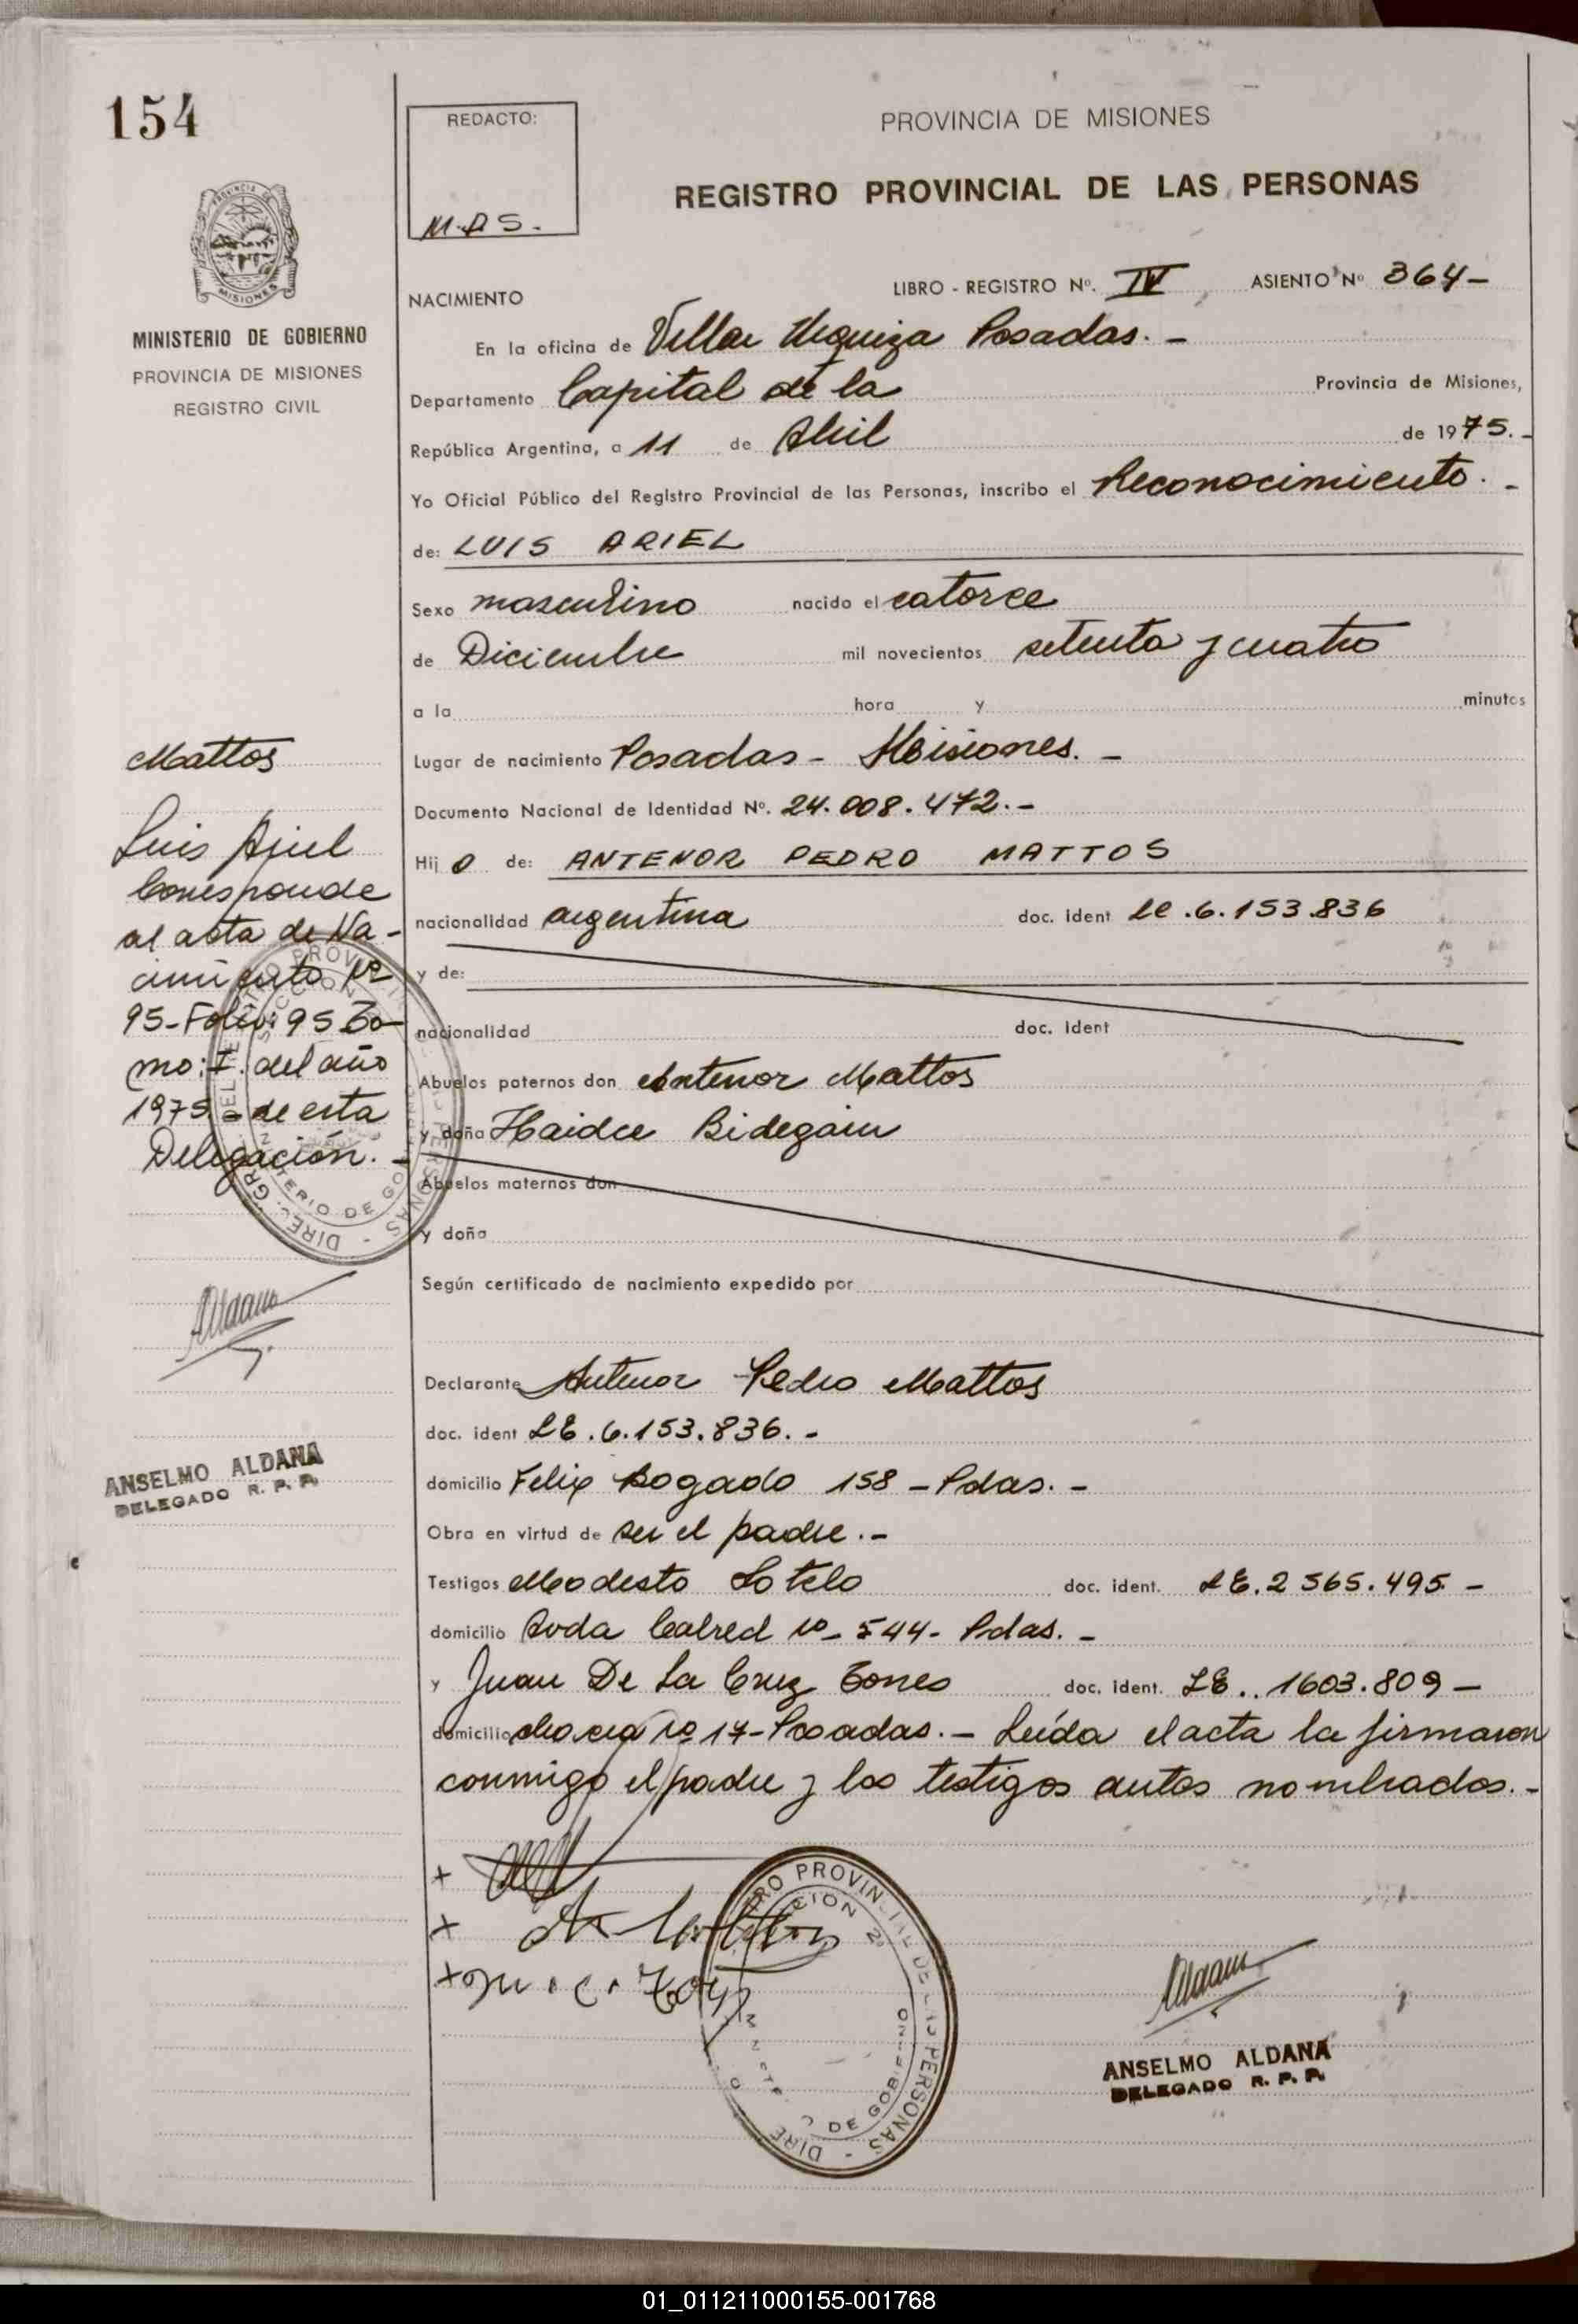 154
REDACTO:
M.A.S.
PROVINCIA DE MISIONES
REGISTRO PROVINCIAL DE LAS PERSONAS
MISIONES
MINISTERIO DE GOBIERNO
PROVINCIA DE MISIONES
REGISTRO CIVIL
LIBRO - REGISTRO Nº. IV ASIENTO Nº 364-
NACIMIENTO
En la oficina de Villa Urquiza Posadas. -
Departamento Capital de la Provincia de Misiones,
República Argentina, a 11 de Abril de 1975.-
Yo Oficial Público del Registro Provincial de las Personas, inscribo el Reconocimiento. -
de: LUIS ARIEL
Sexo masculino nacido el catorce
de Diciembre mil novecientos setenta y cuatro
a la hora y minutos
Lugar de nacimiento Posadas - Misiones. -
Documento Nacional de Identidad Nº. 24.008.472.-
Hij o de: ANTENOR PEDRO MATTOS
nacionalidad argentina doc. ident LE.6.153.836
y de:
nacionalidad doc. ident
Abuelos paternos don Antenor Mattos
y doña Haidee Bidegain
Abuelos maternos don
y doña
Según certificado de nacimiento expedido por
Declarante Antenor Pedro Mattos
doc. ident LE.6.153.836.-
domicilio Felix Bogado 158 - Pdas. -
Obra en virtud de ser el padre.-
Testigos Modesto Sotelo doc. ident. LE.2 565.495 -
domicilio Avda Cabred Nº- 544- Pdas. -
y Juan De La Cruz Torres doc. ident. LE.. 1603.809 -
domicilio chacra Nº 17- Posadas. - Leída el acta la firmaron
conmigo el padre y los testigos antes nombrados.-
Mattos
Luis Ariel
Corresponde
al acta de Na-
cimiento Nº
95-Folio: 95 To-
mo: I. del año
1975 - de esta
Delegación. -
Aldana
ANSELMO ALDANA
DELEGADO R. P. P.
+
+
+
Aldana
ANSELMO ALDANA
DELEGADO R. P. P.
01_011211000155-001768